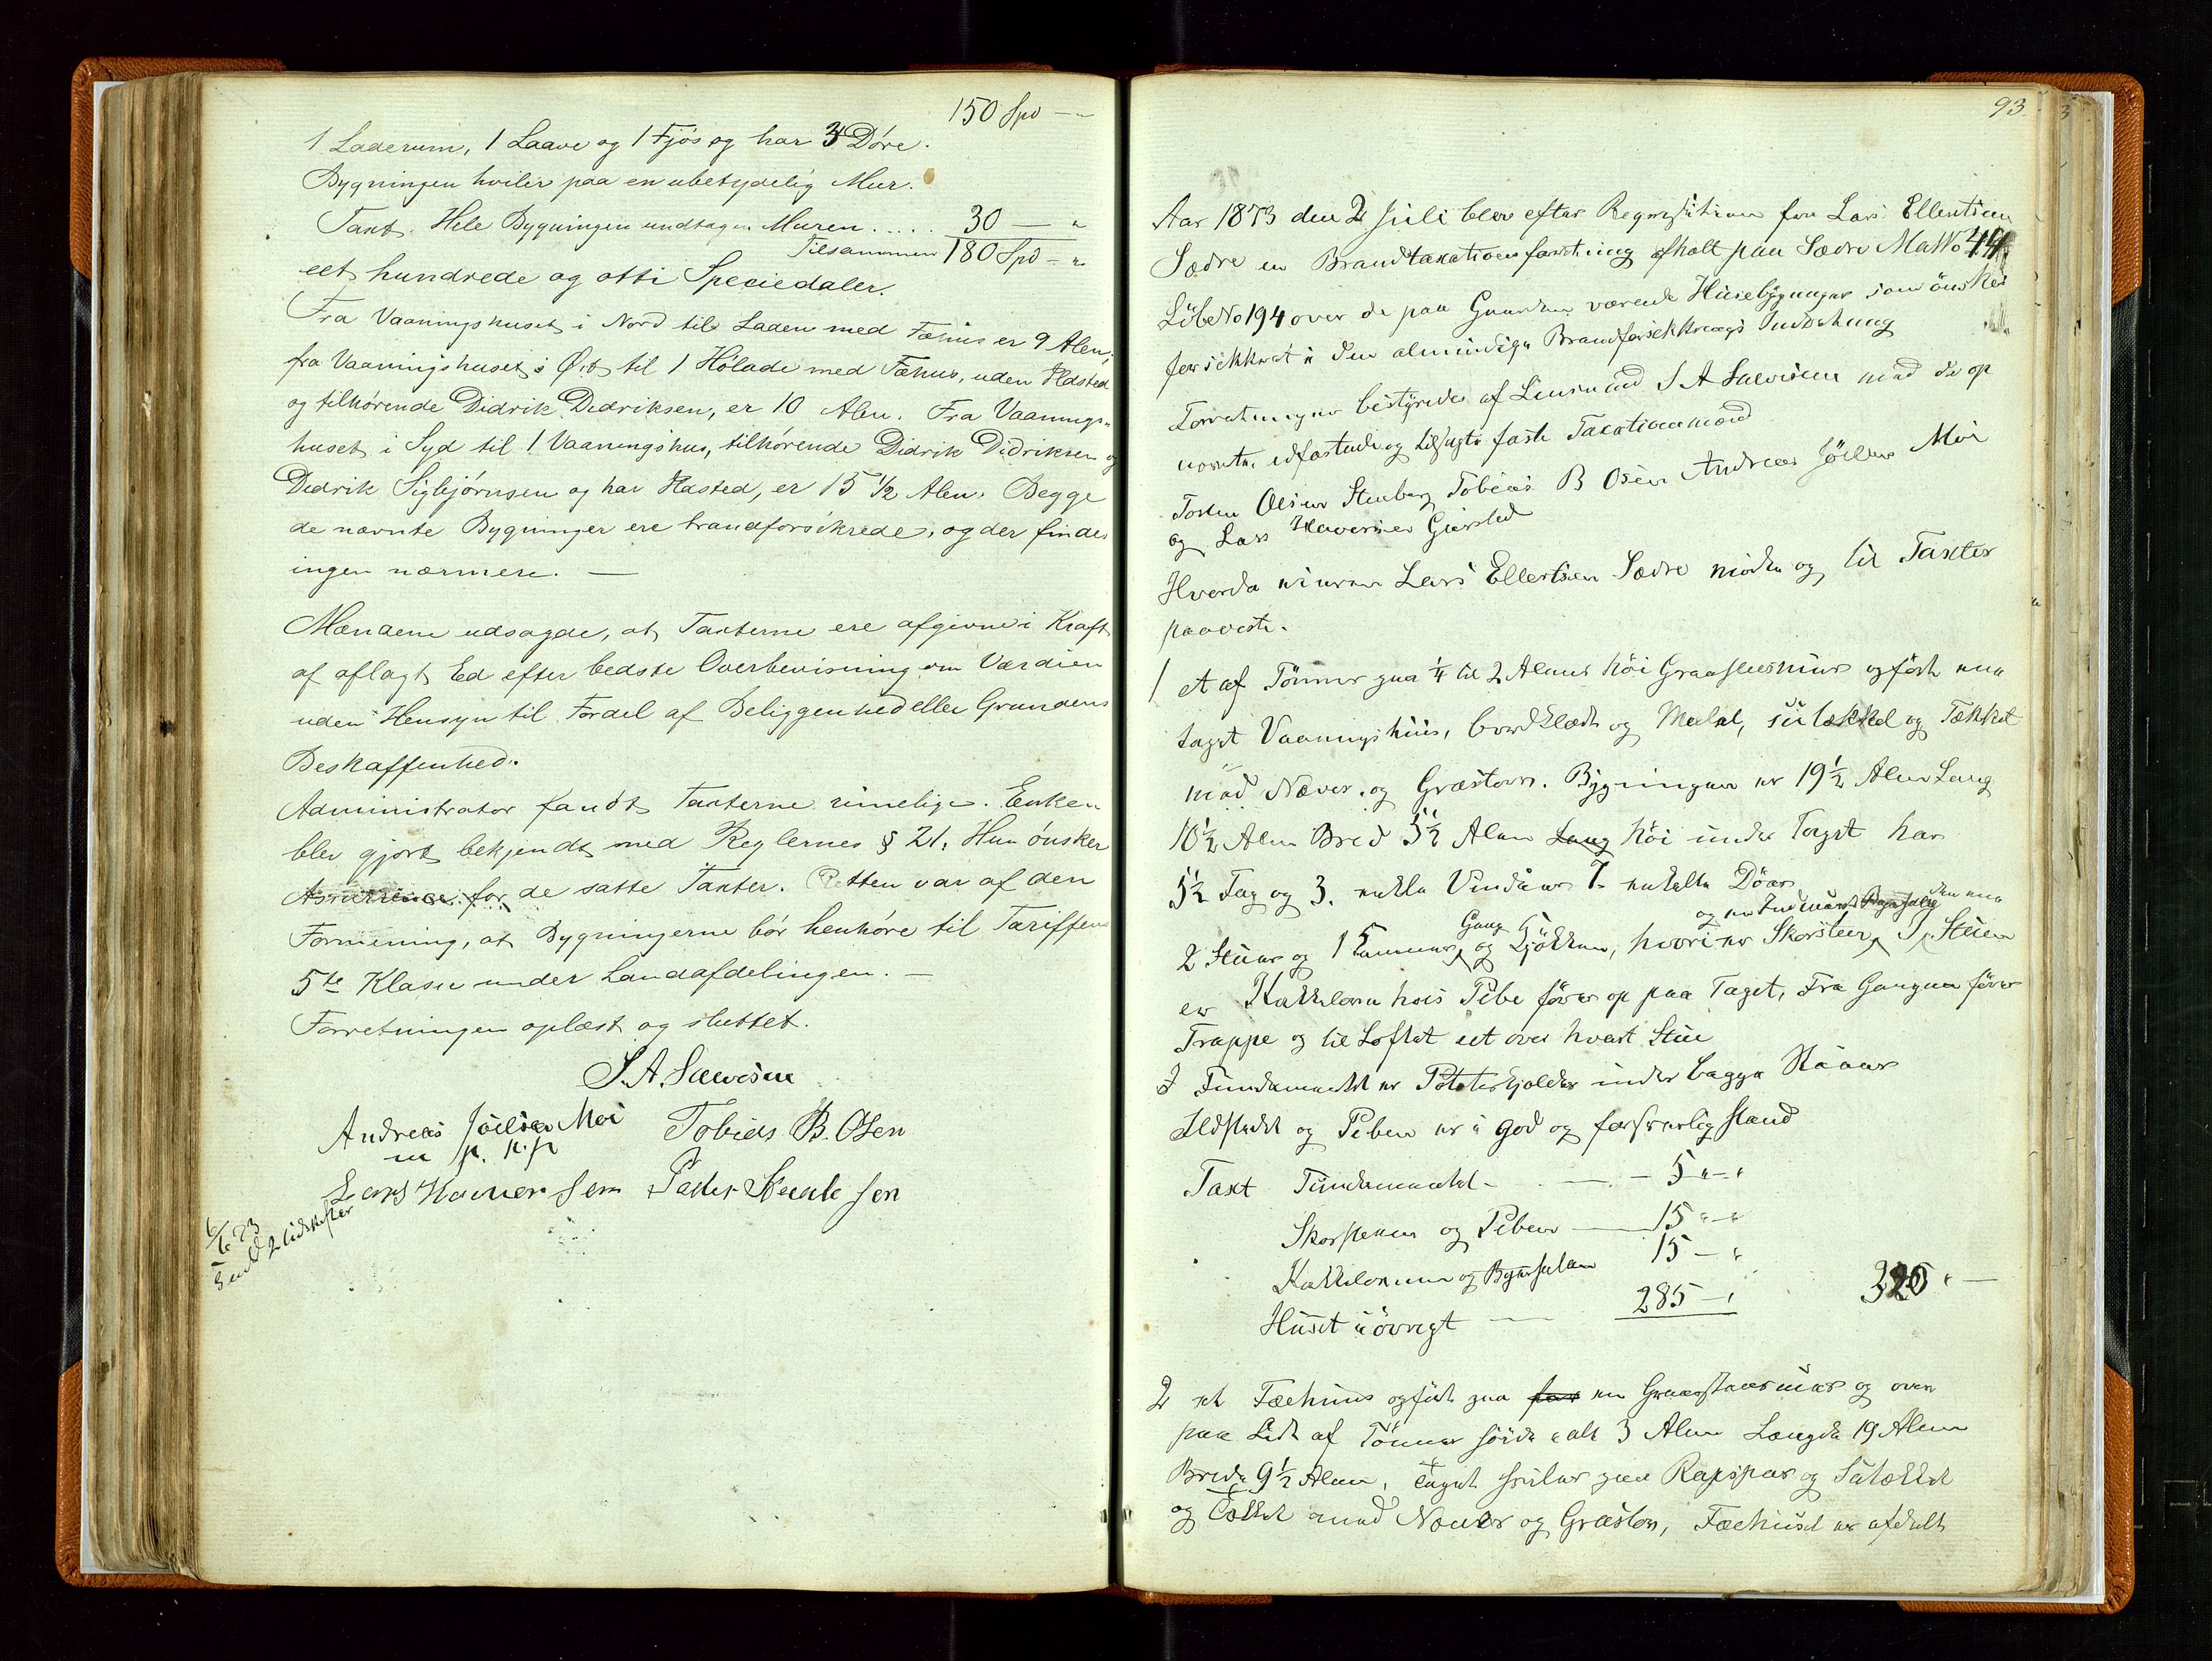 150 Spd — "
1 Laderum, 1 Laave og 1 Fjøs og har 3 Døre.
Bygningen hviler paa en ubetydelig Mur.
Taxt. Hele Bygningen undtagen Muren ..... 30 — "
Tilsammen 180 Spd — "
eet hundrede og otti Speciedaler.
Fra Vaaningshuset i Nord til Laden med Fæhus er 9 Alen,
fra Vaaningshuset i Øst til 1 Hølade med Fæhus, uden Ildsted
og tilhørende Didrik Didriksen, er 10 Alen. Fra Vaanings-
huset i Syd til 1 Vaaningshus, tilhørende Didrik Didriksen og
Didrik Sigbjørnsen og har Ildsted, er 15 1/2 Alen. Begge
de nævnte Bygninger ere brandforsikrede, og der findes
ingen nærmere. —
Mændene udsagde, at Taxterne ere afgivne i Kraft
af aflagt Ed efter bedste Overbevisning om Værdien
uden Hensyn til Fordel af Beliggenhed eller Grundens
Beskaffenhed.
Administrator fandt Taxterne rimelige. Enken
blev gjort bekjendt med Reglernes § 21. Hun ønsker
Assurrence for de satte Taxter. Retten var af den
Formening, at Bygningerne bør henhøre til Tariffens
5te Klasse under Landafdelingen. —
Forretningen oplæst og sluttet.
S. A. Salvesen
Andreas Joelsen Moi Tobias B. Osen
m p. p.
Lars Haversen Peder
6/6 73
Sendt 2 Udskrifter
93.
Aar 1873 den 2 Juli blev efter Reqvisition fra Lars Ellertsen
Sædre en Brandtaxationsforretning afholt paa Sædre MatNo 44
LøbeNo 194 over de paa Gaarden værende Husebygninger som ønskes
forsikkret i den almindelige Brandforsikkrings Indretning
Forretningen bestyredes af Lensmand S A Salvesen med de op
nevnte, edfæstede og tilsagte faste Taxationsmænd
Osen Stenberg Tobias B Osen Andreas Joelsen Moi
og Lars Haversen
Hvorda eieren Lars Ellertsen Sædre mødte og til Taxter
paaviste.
1 et af Tømmer paa 1/4 til 2 Alens høi Graastensmur opført en
taget Vaaningshuus, bordklædt og Malet, sutækket og Tækket
med Næver og Græstorv. Bygningen er 19 1/2 Alen Lang
10 1/2 Alen Bred 5 1/2 Alen Lang høi under Taget har
5 1/2 Fag og 3. enkle Vinduer 7 enkelte Døre
og en den ene
2 Stuer og 1 Kammer, Gang og Kjøkken, hvori er Skorsten, I Stuen
er Kakkelovn hvis Pibe fører op paa Taget, Fra Gangen fører
Trappe og til Loftet eet over hvert Stue
I Fundamentet er Poteteskjelder under begge Stuer
Ildstedet og Piben er i god og forsvarlig stand
Taxt Fundamentet — 5 " — "
Skorstenen og Piben — 15 " — "
Kakkelovnen og 15 — "
Huset i øvrigt — 285 — " 320 " —
2 et Fæehuus opført paa en Graastensmur og oven
paa Lidt af Tømmer høide alt 3 Alen Længde 19 Alen
Brede 9 1/2 Alen, Taget hviler paa og Sutækket
og Tækket med Næver og Græstorv, Fæehuset er afdeelt